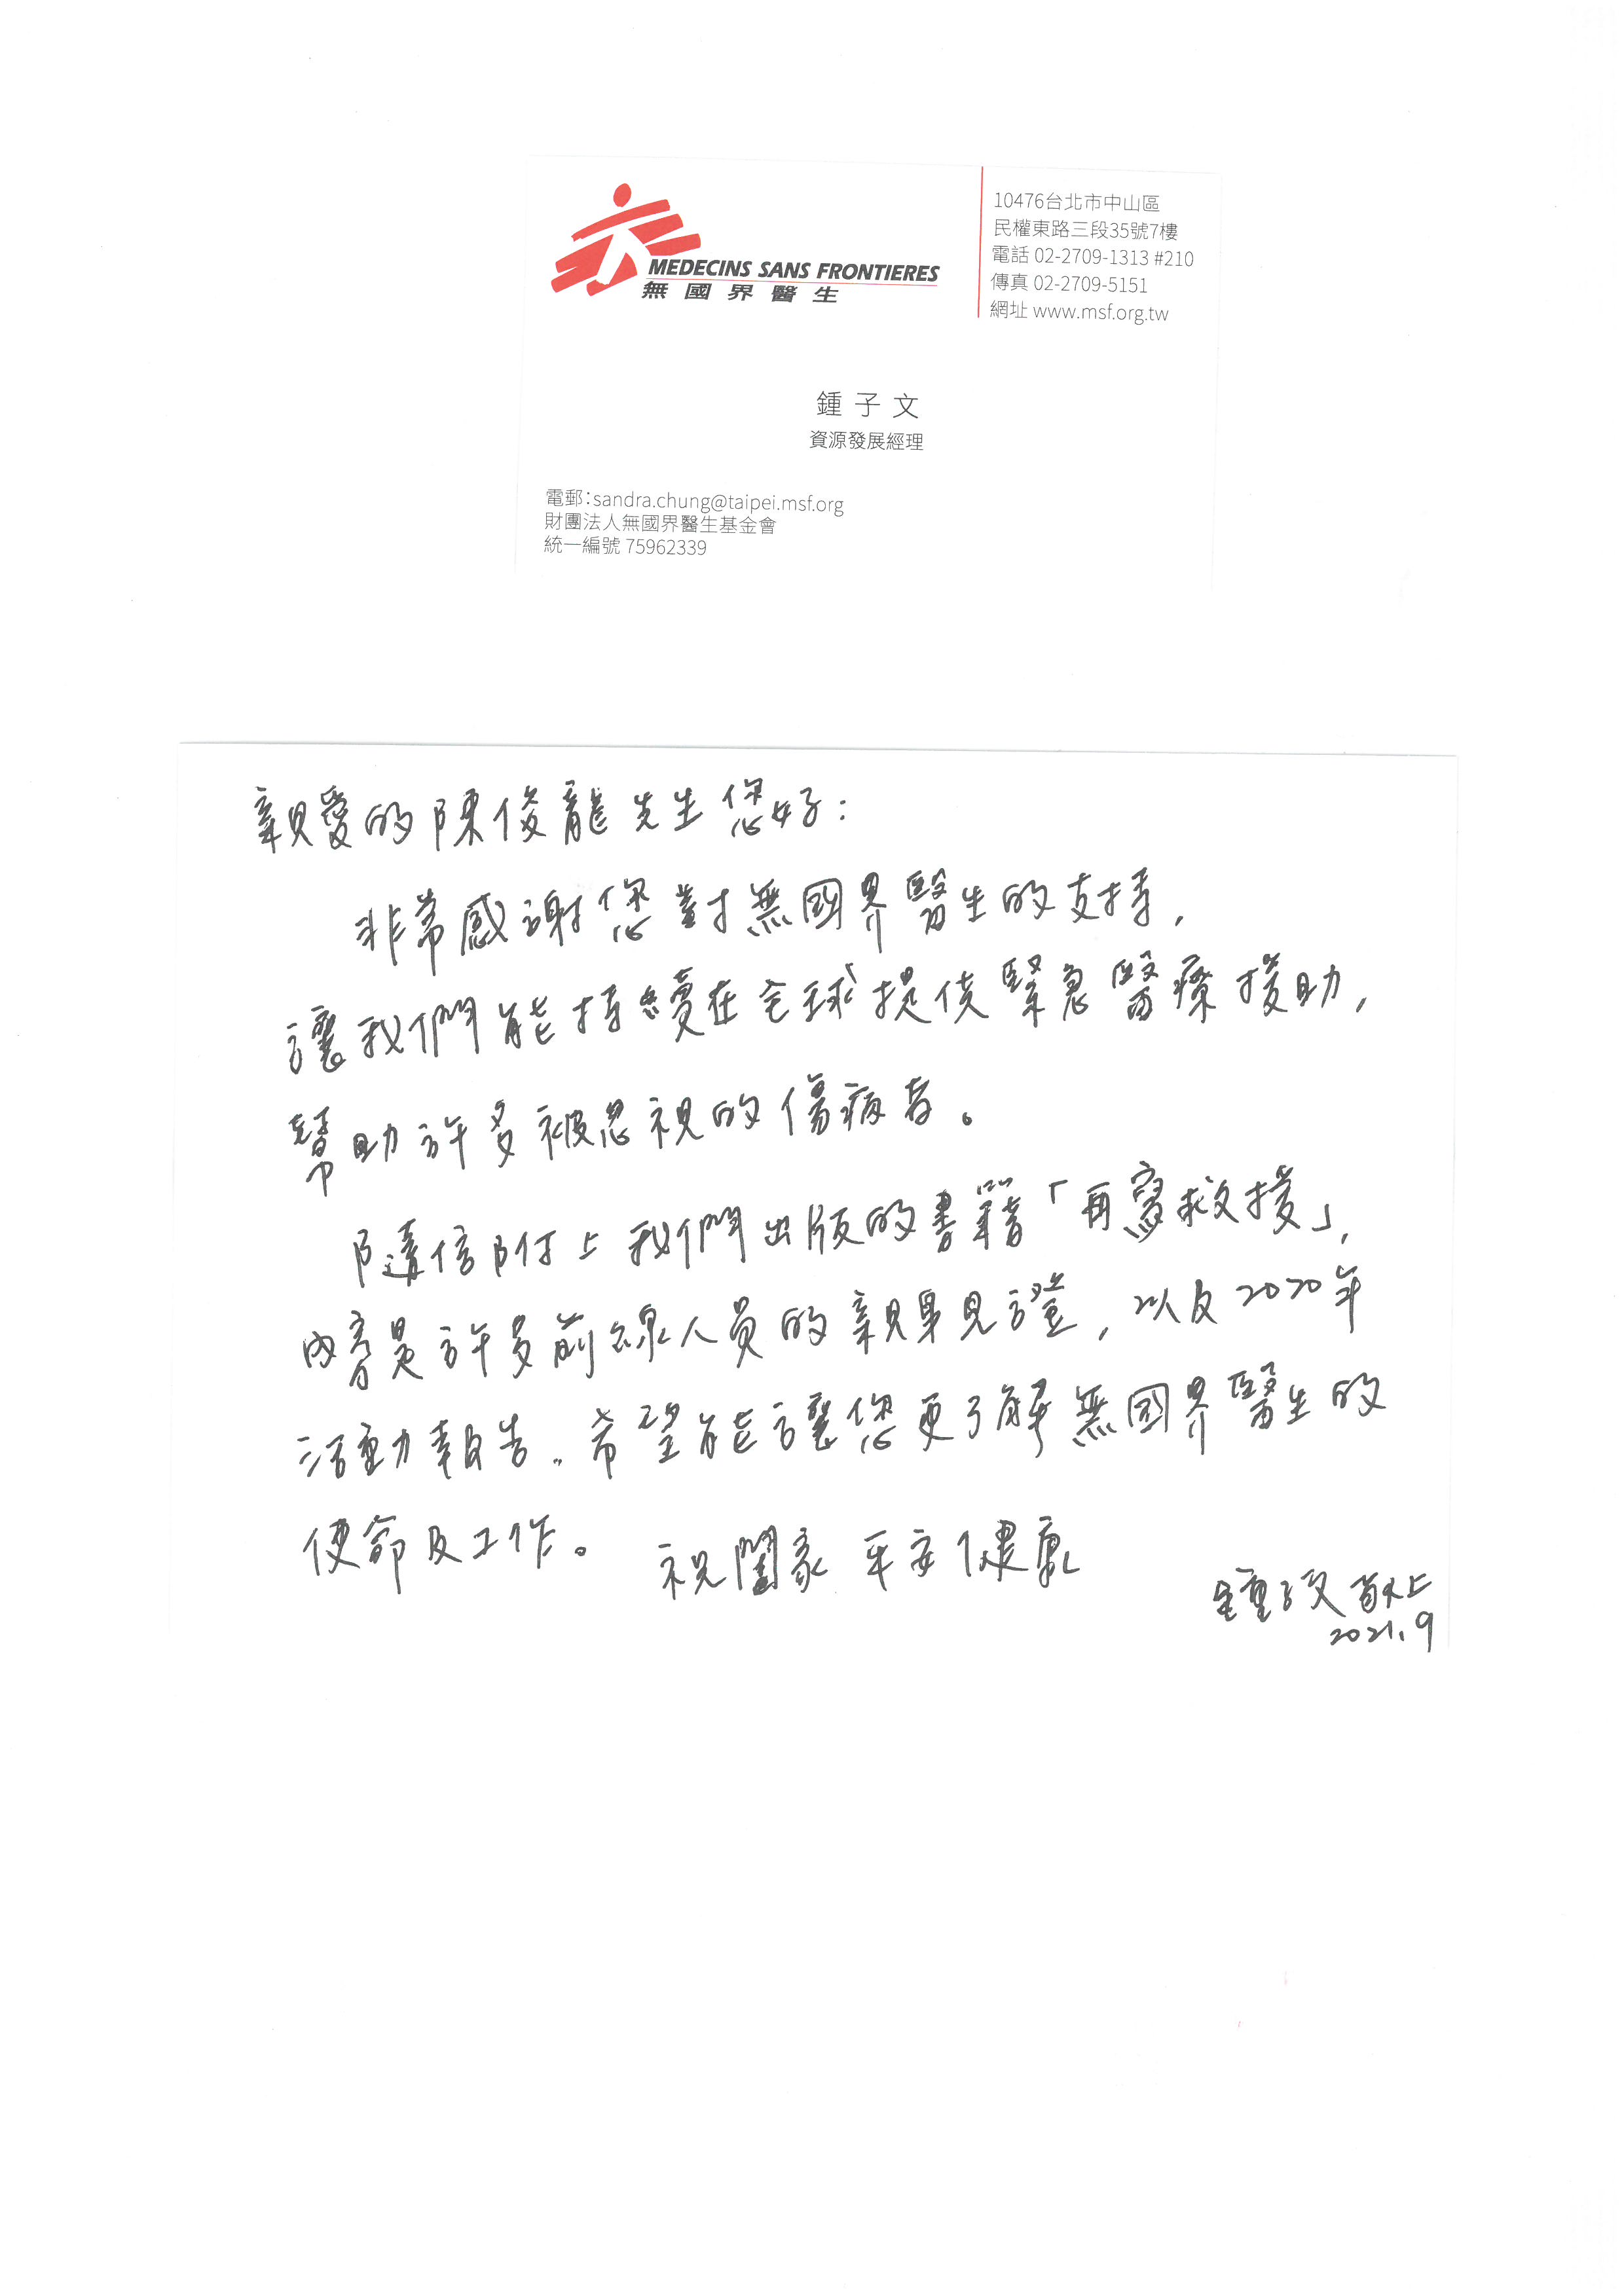 MEDECINS SANS FRONTIERES
無國界醫生
10476台北市中山區
民權東路三段35號7樓
電話 02-2709-1313 #210
傳真 02-2709-5151
網址 www.msf.org.tw
鍾子文
資源發展經理
電郵:sandra.chung@taipei.msf.org
財團法人無國界醫生基金會
統一編號 75962339
親愛的陳俊龍先生您好:
非常感謝您對無國界醫生的支持,
讓我們能持續在全球提供緊急醫療援助,
幫助許多被忽視的傷病者。
隨信附上我們出版的書籍「再寫救援」,
內容是許多前線人員的親身見證,以及2020年
活動報告。希望能讓您更了解無國界醫生的
使命及工作。 祝闔家平安健康
鍾子文 敬上
2021.9